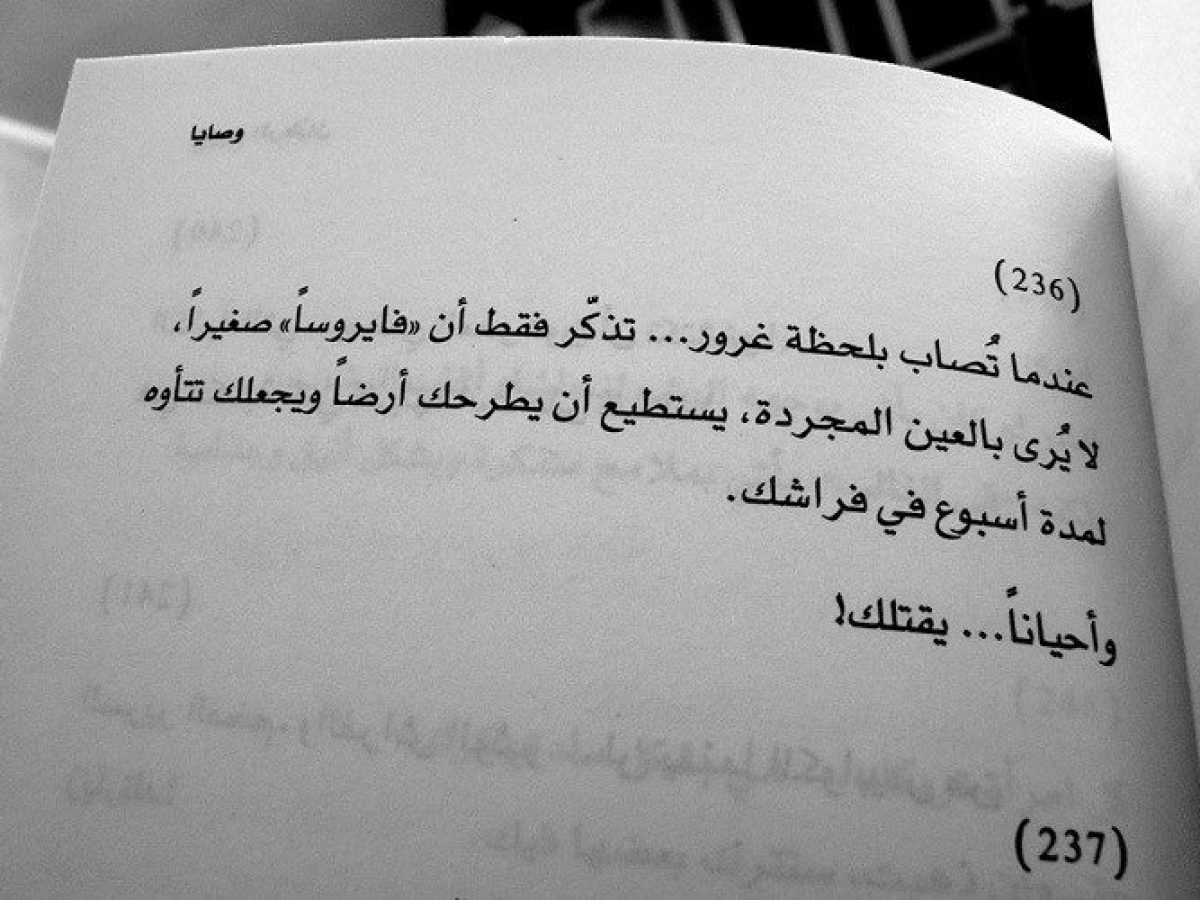 وصايا
(236)
عندما تُصاب بلحظة غرور... تذكّر فقط أن «فايروساً» صغيراً،
لا يُرى بالعين المجردة، يستطيع أن يطرحك أرضاً ويجعلك تتأوه
لمدة أسبوع في فراشك.
وأحياناً... يقتلك!
(237)